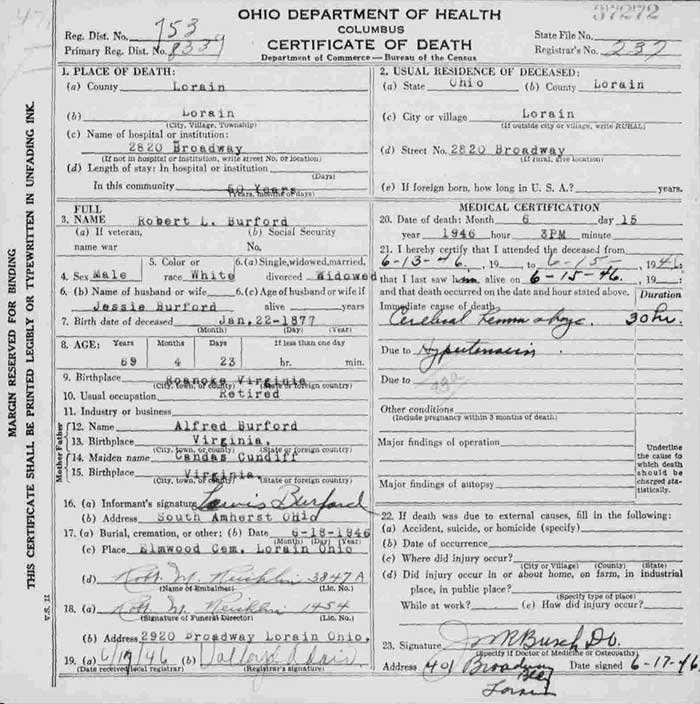 OHIO DEPARTMENT OF HEALTH
COLUMBUS
CERTIFICATE OF DEATH
Department of Commerce—Bureau of the Census
Reg. Dist. No. 753
Primary Reg. Dist. No. 8337
State File No.
Registrar's No. 237
MARGIN RESERVED FOR BINDING
THIS CERTIFICATE SHALL BE PRINTED LEGIBLY OR TYPEWRITTEN IN UNFADING INK.
V.S. 11
1. PLACE OF DEATH:
(a) County Lorain
(b) Lorain
(City, Village, Township)
(c) Name of hospital or institution:
2820 Broadway
(If not in hospital or institution, write street No. or location)
(d) Length of stay: In hospital or institution
(Days)
In this community 60 Years
(Years, months or days)
2. USUAL RESIDENCE OF DECEASED:
(a) State Ohio (b) County Lorain
(c) City or village Lorain
(If outside city or village, write RURAL)
(d) Street No. 2820 Broadway
(If rural, give location)
(e) If foreign born, how long in U. S. A.? years.
3. FULL NAME Robert L. Burford
(a) If veteran, name war
(b) Social Security No.
4. Sex Male
5. Color or race White
6. (a) Single, widowed, married, divorced Widowed
6. (b) Name of husband or wife Jessie Burford
6. (c) Age of husband or wife if alive years
7. Birth date of deceased Jan. 22-1877
(Month) (Day) (Year)
8. AGE: Years Months Days If less than one day
69 4 23 hr. min.
9. Birthplace Roanoke Virginia
(City, town, or county) (State or foreign country)
10. Usual occupation Retired
11. Industry or business
Father
12. Name Alfred Burford
13. Birthplace Virginia.
(City, town, or county) (State or foreign country)
Mother
14. Maiden name Candas Cundiff
15. Birthplace Virginia
(City, town, or county) (State or foreign country)
16. (a) Informant's signature Lewis Burford
(b) Address South Amherst Ohio
17. (a) Burial, cremation, or other; (b) Date 6-18-1946
(Month) (Day) (Year)
(c) Place Elmwood Cem. Lorain Ohio
(d) Robt. M. Reichlin 3847A
(Name of Embalmer) (Lic. No.)
18. (a) Robt. M. Reichlin 1454
(Signature of Funeral Director) (Lic. No.)
(b) Address 2920 Broadway Lorain Ohio.
19. (a) 6/19/46 (b)
(Date received local registrar) (Registrar's signature)
MEDICAL CERTIFICATION
20. Date of death: Month 6 day 15
year 1946 hour 3PM minute
21. I hereby certify that I attended the deceased from
6-13-46, 19 to 6-15-, 1946,
that I last saw him alive on 6-15-46, 19 :
and that death occurred on the date and hour stated above. Duration
Immediate cause of death
Cerebral Hemorrhage. 30 hr.
Due to Hypertension.
Due to
Other conditions
(Include pregnancy within 3 months of death)
Major findings of operation
Major findings of autopsy
Underline the cause to which death should be charged statistically.
22. If death was due to external causes, fill in the following:
(a) Accident, suicide, or homicide (specify)
(b) Date of occurrence
(c) Where did injury occur?
(City or Village) (County) (State)
(d) Did injury occur in or about home, on farm, in industrial
place, in public place?
(Specify type of place)
While at work? (e) How did injury occur?
23. Signature Busch D.O.
(Specify if Doctor of Medicine or Osteopathy)
Address 401 Broadway Date signed 6-17-46
Lorain